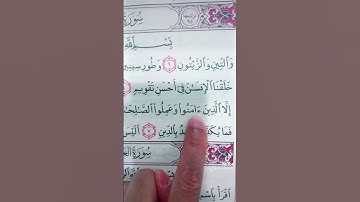 سُورَةُ
بِسْمِ ٱللَّهِ
وَٱلتِّينِ وَٱلزَّيْتُونِ ١ وَطُورِ سِينِينَ
خَلَقْنَا ٱلْإِنسَٰنَ فِىٓ أَحْسَنِ تَقْوِيمٍ ٤
إِلَّا ٱلَّذِينَ ءَامَنُوا۟ وَعَمِلُوا۟ ٱلصَّٰلِحَٰ
فَمَا يُكَذِّ بِٱلدِّينِ ٧ أَلَيْسَ
سُورَةُ ٱلع
ٱقْرَأْ بِٱسْمِ